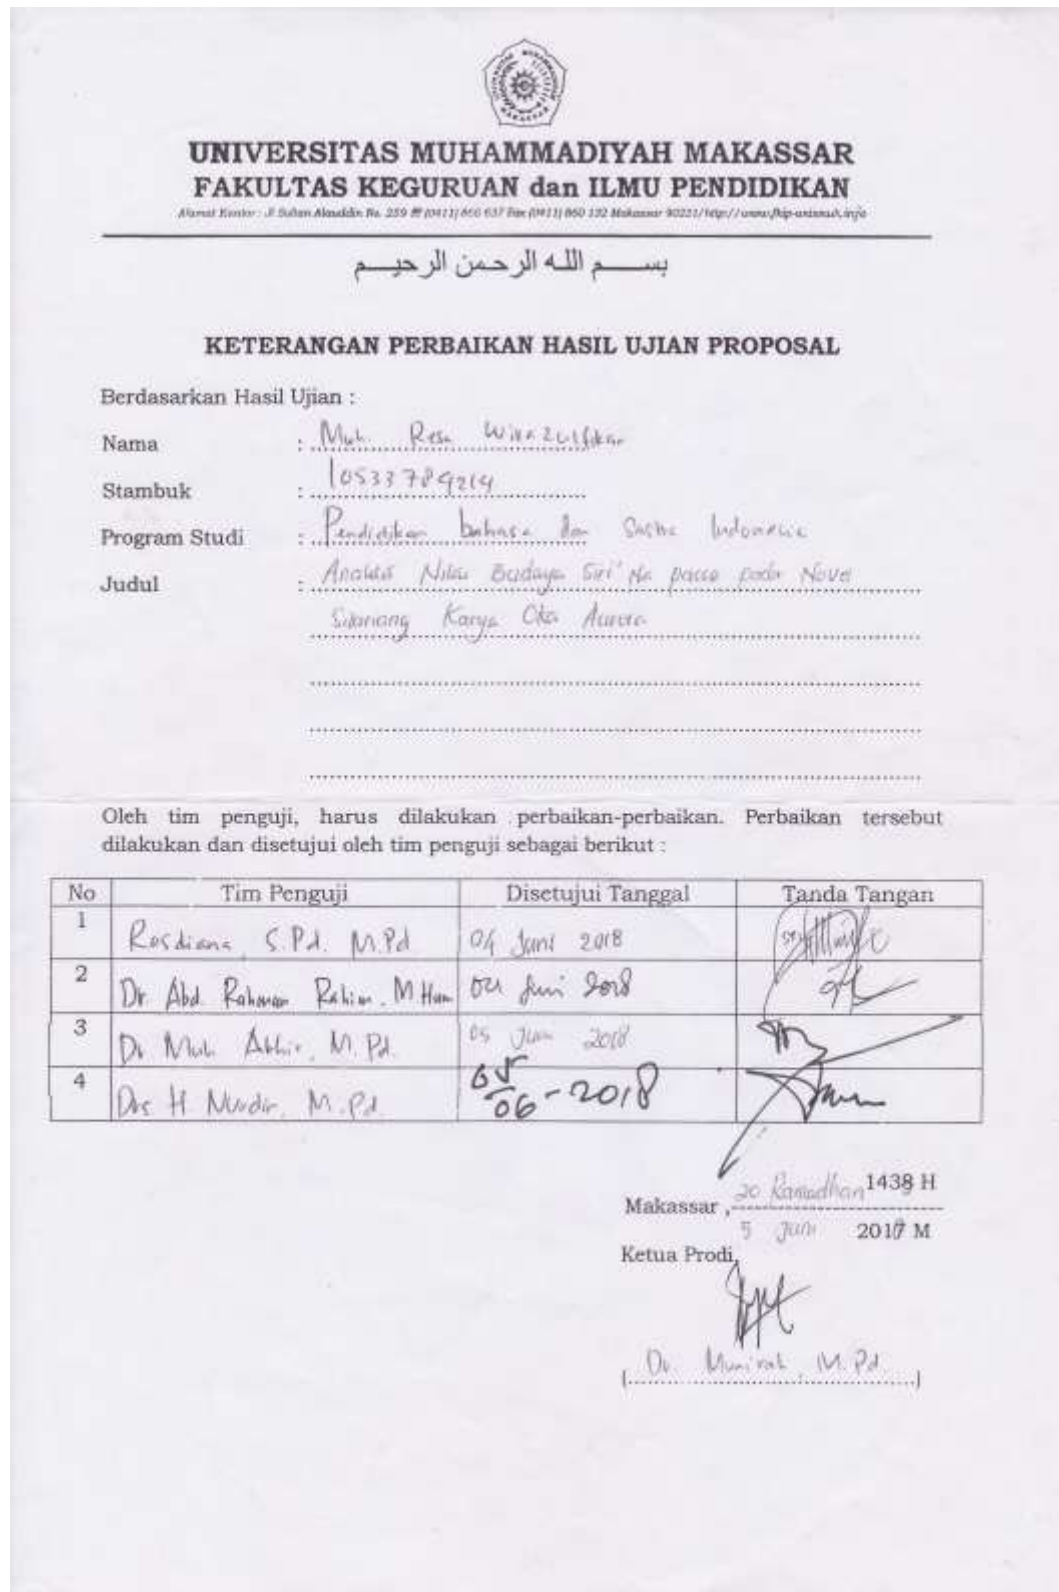 UNIVERSITAS MUHAMMADIYAH MAKASSAR
FAKULTAS KEGURUAN dan ILMU PENDIDIKAN
Alamat Kantor : Jl. Sultan Alauddin No. 259 ☎ (0411) 866 637 Fax (0411) 860 132 Makassar 90221/http://www.fkip-unismuh.info
بســـــم اللـه الرحـمن الرحيـــم
KETERANGAN PERBAIKAN HASIL UJIAN PROPOSAL
Berdasarkan Hasil Ujian :
Nama : Muh. Resa Wira Zulfikar
Stambuk : 10533789214
Program Studi : Pendidikan bahasa dan Sastra Indonesia
Judul : Analisis Nilai Budaya Siri' Na pacce pada Novel
Silariang Karya Oka Aurora
Oleh tim penguji, harus dilakukan perbaikan-perbaikan. Perbaikan tersebut
dilakukan dan disetujui oleh tim penguji sebagai berikut :
No Tim Penguji Disetujui Tanggal Tanda Tangan
1 Rosdiana, S.Pd. M.Pd 04 Juni 2018
2 Dr. Abd. Rahman Rahim, M.Hum 04 Juni 2018
3 Dr. Muh. Akhir, M.Pd. 05 Juni 2018
4 Drs. H. Nurdin, M.Pd. 05/06-2018
20 Ramadhan 1439 H
Makassar ,
5 Juni 2018 M
Ketua Prodi,
(Dr. Munirah, M.Pd.)